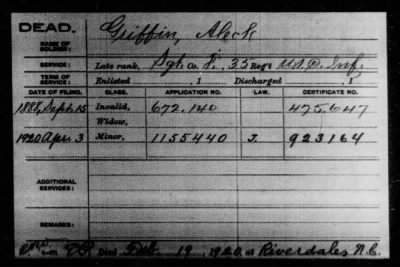 DEAD. Griffin, Aleck
NAME OF SOLDIER:
SERVICE: Late rank, Sgt. Co. F, 35 Reg't U.S.C. Inf.
TERM OF SERVICE: Enlisted , 1 Discharged , 1
DATE OF FILING. CLASS. APPLICATION NO. LAW. CERTIFICATE NO.
1888, Sept. 15 Invalid, 672.140 475.647
Widow,
1920 Apr. 3 Minor, 1155440 J. 923164
ADDITIONAL SERVICES:
REMARKS:
Died Feb. 19, 1920, at Riverdale, N.C.